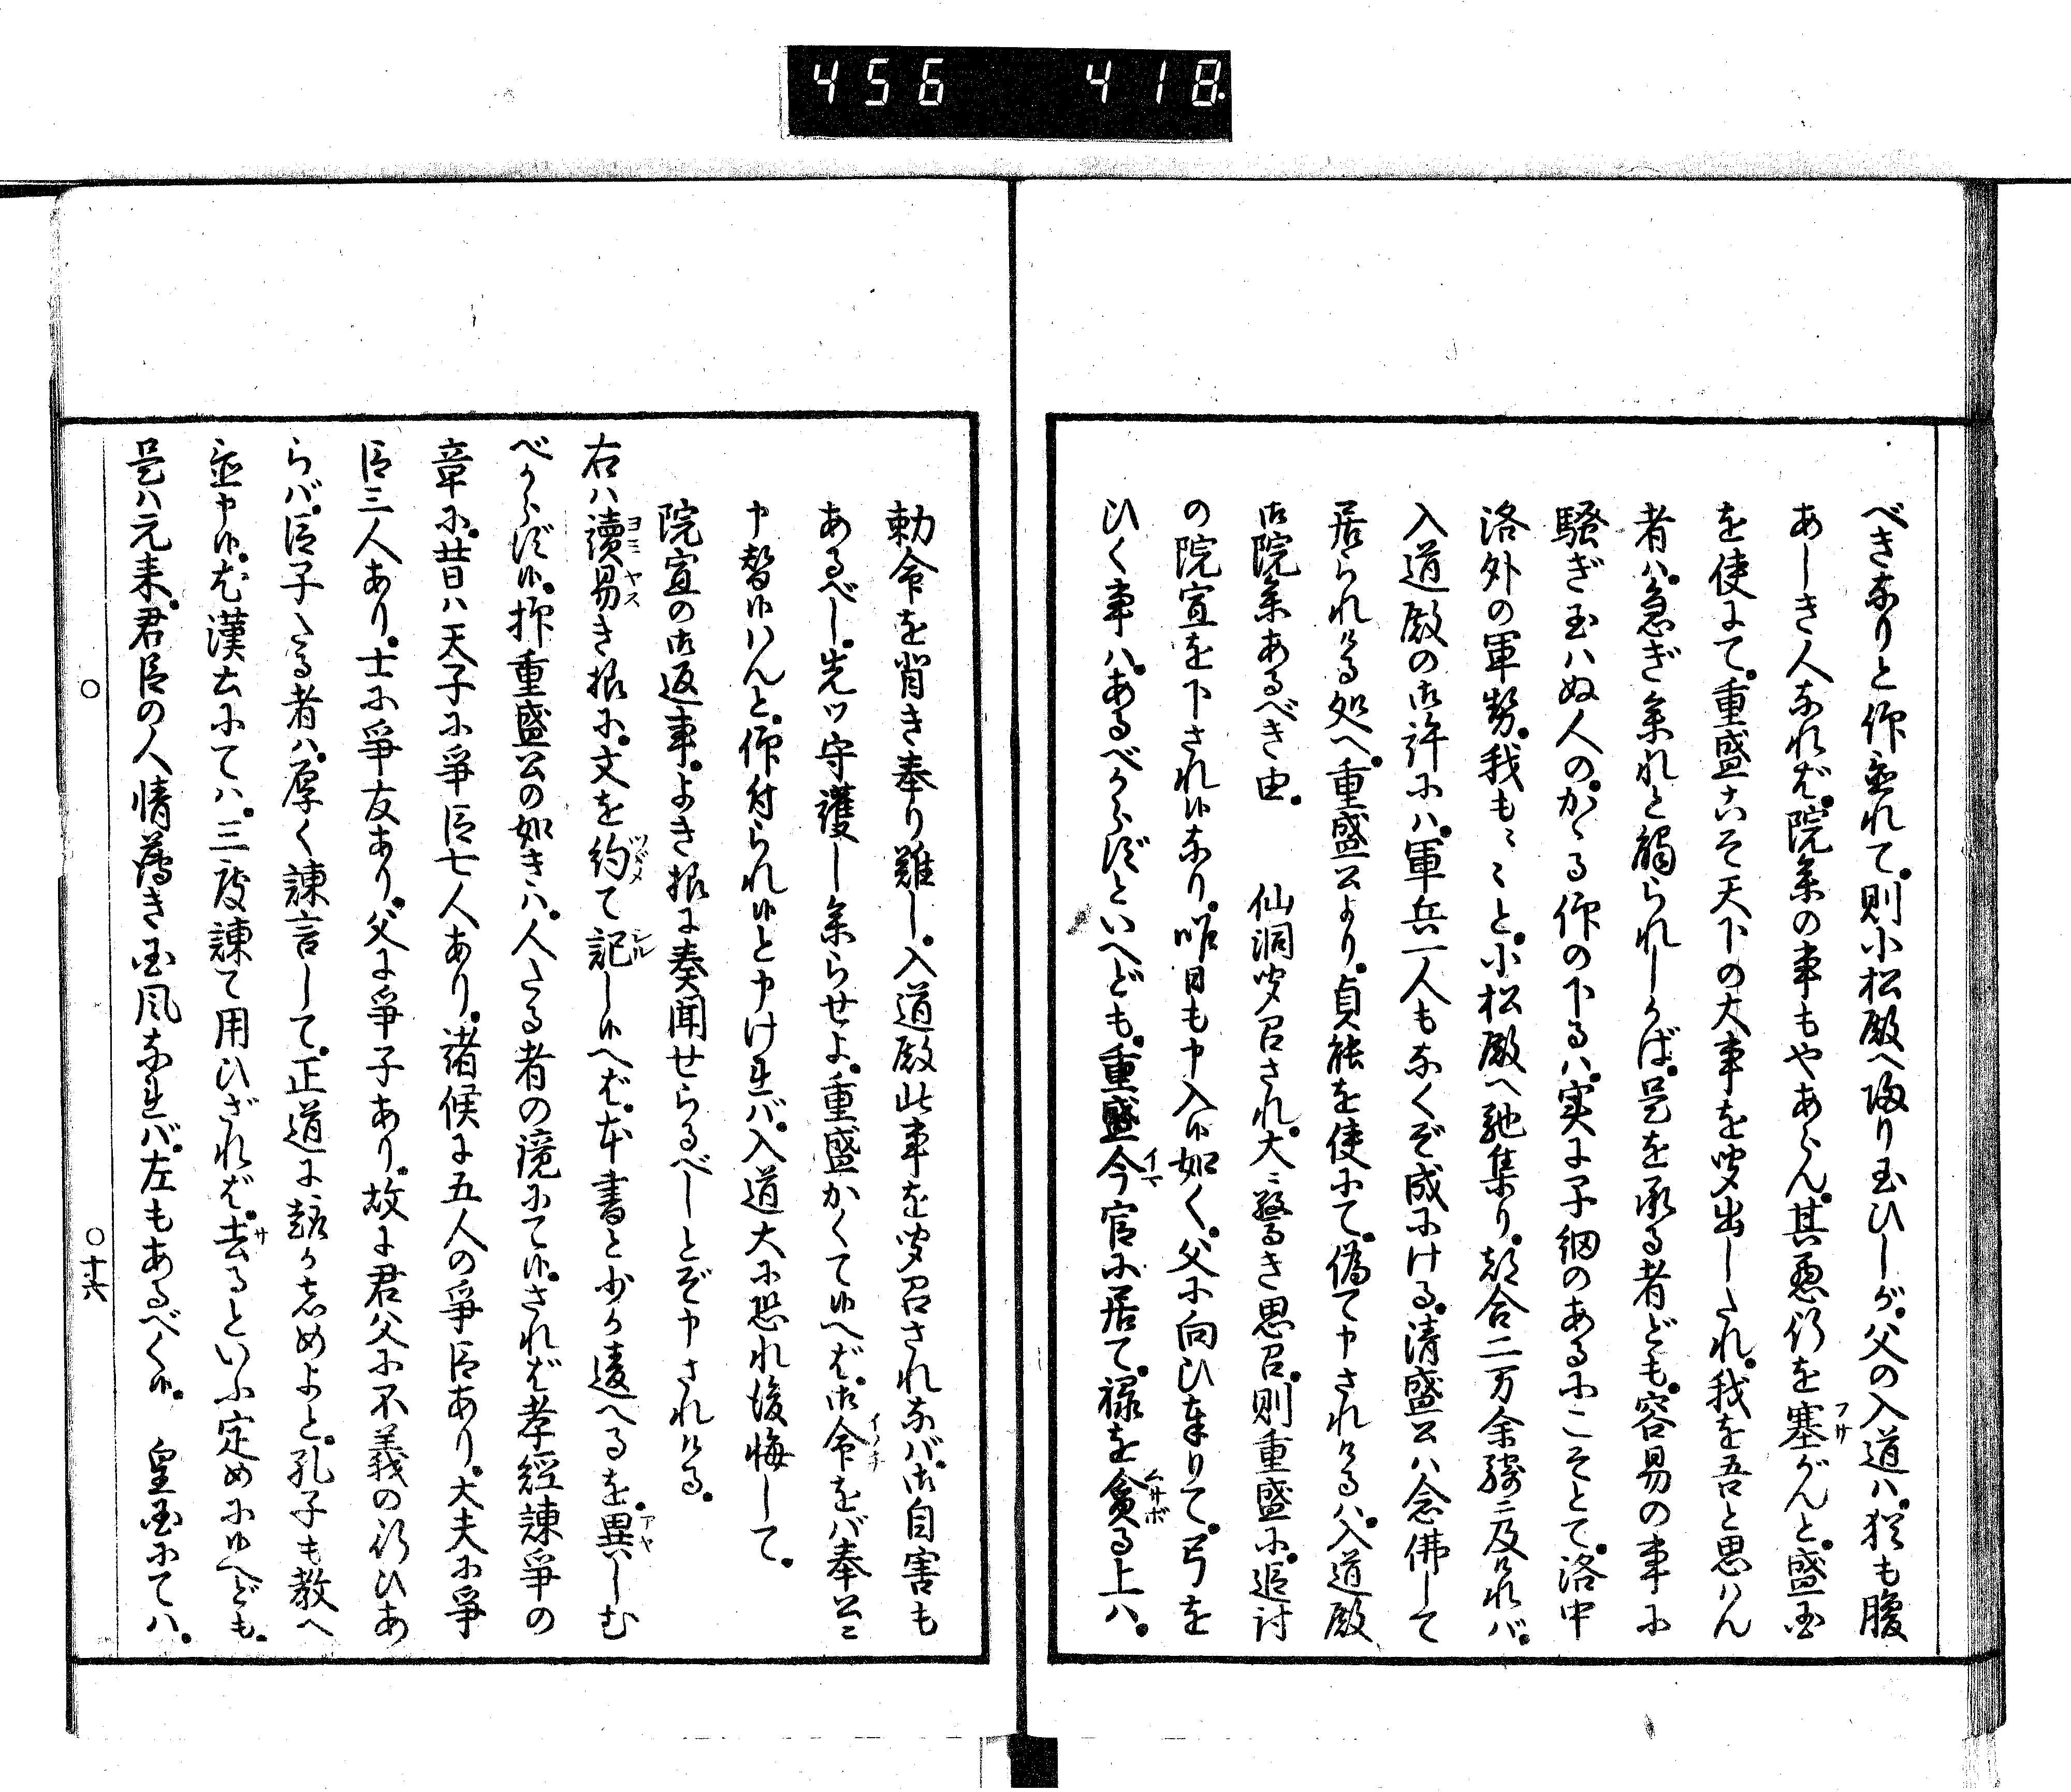 456 418
べきなりと仰置れて。則小松殿へ帰り玉ひしが。父の入道ハ。猶も腹
あしき人なれば。院参の事もやあらん。其悪行を塞がんと。盛国
を使にて。重盛こそ天下の大事を聞出したれ。我を吾と思はん
者ハ。急ぎ参れと觸られしかば。是を承る者ども。容易の事に
騒ぎ玉ハぬ人の。かゝる仰の下るハ。実に子細のあるにこそとて。洛中
洛外の軍勢。我も〻〻と。小松殿へ馳集り。都合二万余騎ニ及ければ。
入道殿の御許にハ。軍兵一人もなくぞ成にける。清盛公ハ念佛して
居られける処へ。重盛公より。貞能を使にて。偽て申されけるハ。入道殿
御院参あるべき由。 仙洞聞召され。大ニ驚き思召。則重盛に。追討
の院宣を下され候なり。昨日も申入候如く。父に向ひ奉りて。弓を
ひく事ハ。あるべからずといへども。重盛今官に居て。禄を貪る上ハ。
勅命を背き奉り難し。入道殿此事を聞召されなバ。御自害も
あるべし。先ツ守護し参らせよ。重盛かくて候へば。御命をバ奉公ニ
申替候はんと。仰付られ候と申けれバ。入道大に恐れ後悔して。
院宣の御返事。よき様に奏聞せらるべしとぞ申されける。
右ハ讀易き様に。文を約て記し候へば。本書と少か違へるを。異しむ
べからず候。抑重盛公の如きハ。人たる者の鏡にて候。されば孝經諌爭の
章に。昔ハ天子に爭臣七人あり。諸候に五人の爭臣あり。大夫に爭
臣三人あり。士に爭友あり。父に爭子あり。故に君父に不義の行ひあ
らバ。臣子たる者ハ。厚く諌言して。正道に趣かしめよと。孔子も教へ
置申候。尤漢土にてハ。三度諌て用ひざれば。去るといふ定めに候へども。
是ハ元来。君臣の人情薄き国風なれバ。左もあるべく候。 皇国にてハ。
十六